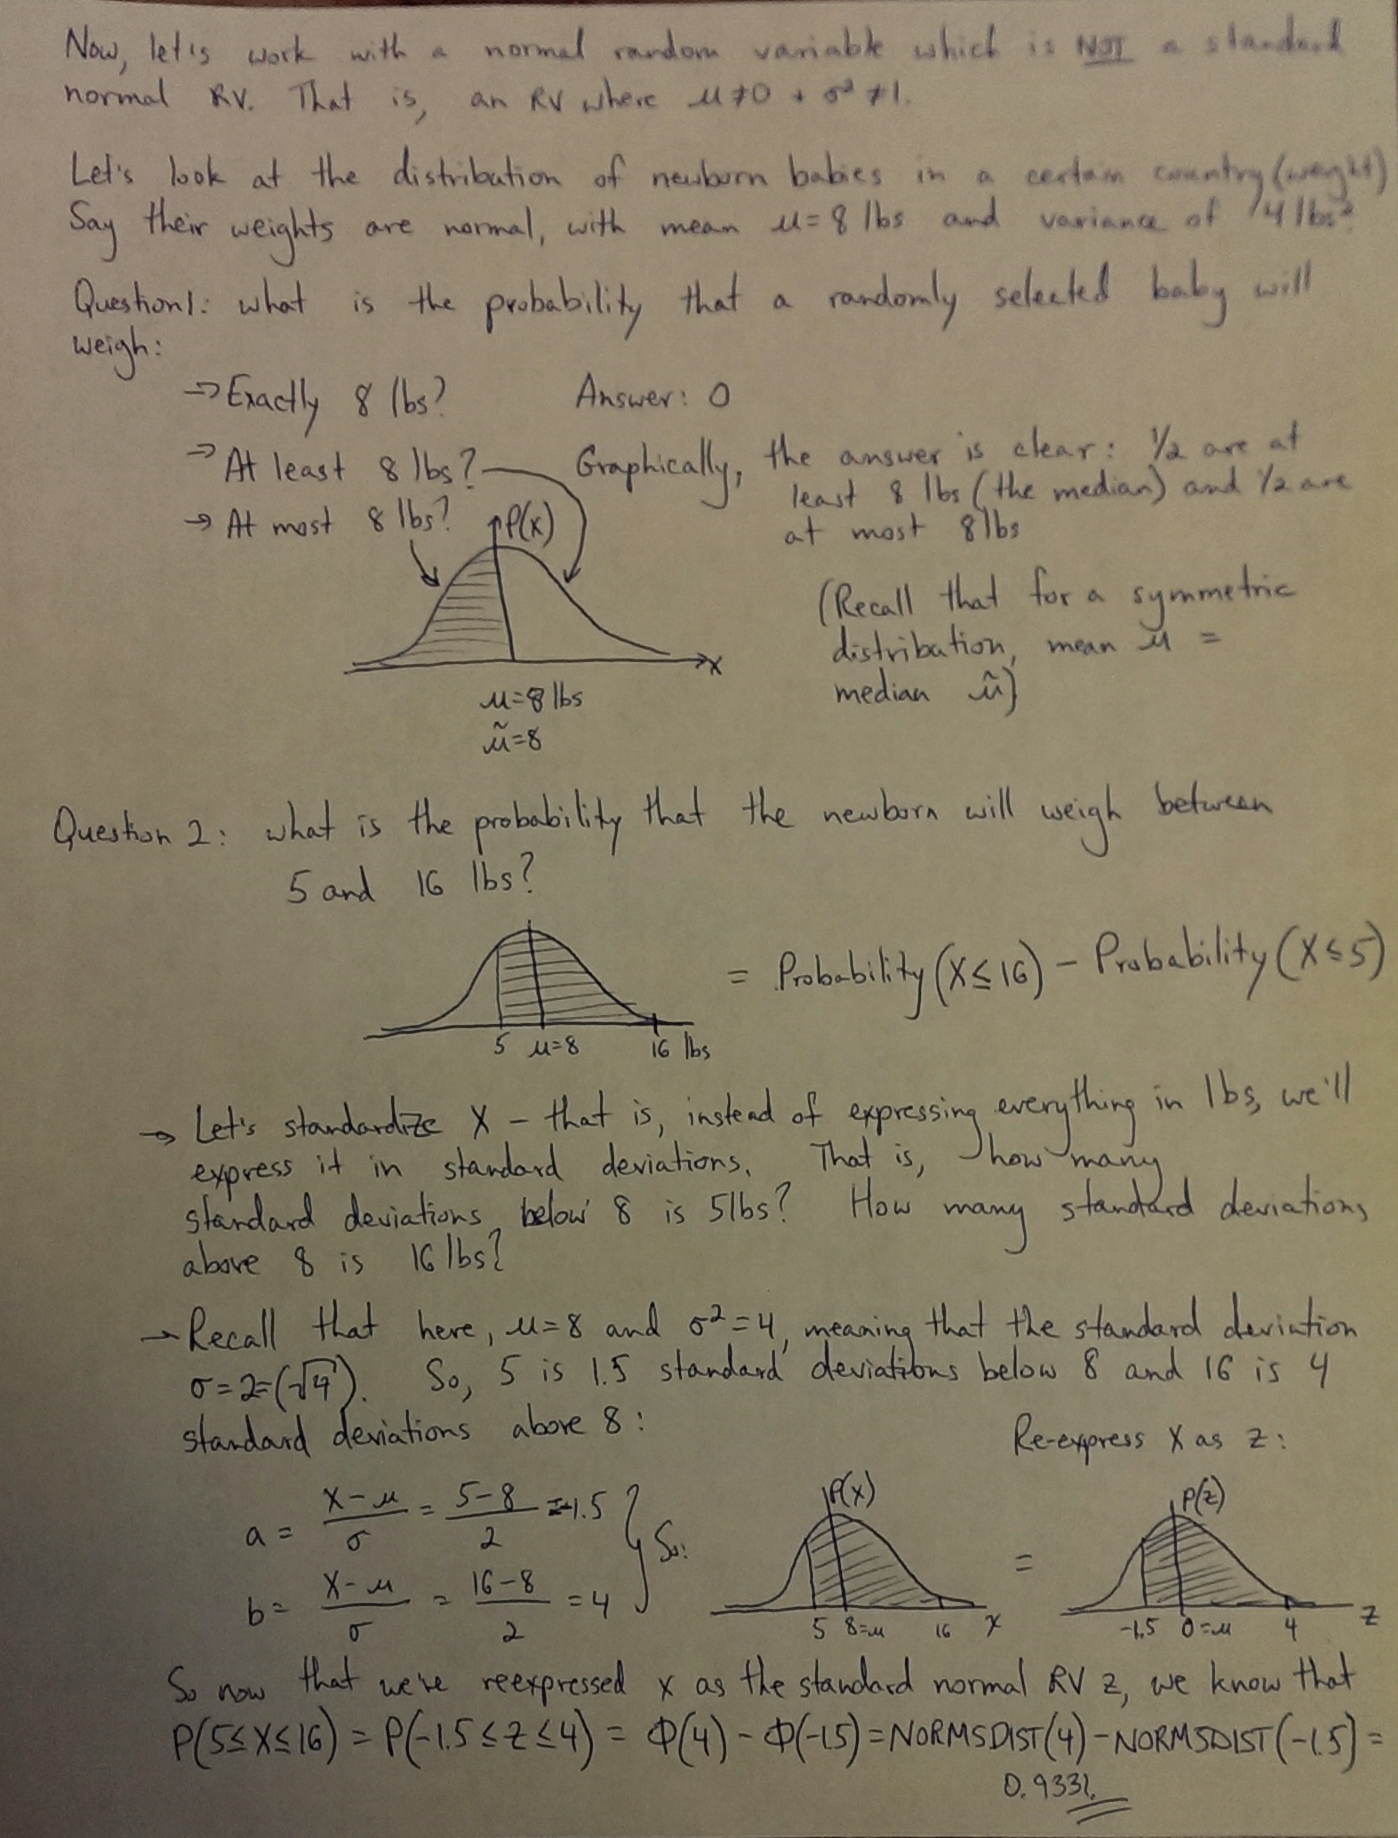 Now, let's work with a normal random variable which is NOT a standard
normal RV. That is, an RV where μ≠0 + σ²≠1.
Let's look at the distribution of newborn babies in a certain country (weight)
Say their weights are normal, with mean μ=8 lbs and variance of 4 lbs².
Question 1: what is the probability that a randomly selected baby will
weigh:
→ Exactly 8 lbs? Answer: 0
→ At least 8 lbs? Graphically, the answer is clear: 1/2 are at
least 8 lbs (the median) and 1/2 are
→ At most 8 lbs? P(x)
at most 8 lbs
(Recall that for a symmetric
distribution, mean μ =
x
median μ̃)
μ=8 lbs
μ̃=8
Question 2: what is the probability that the newborn will weigh between
5 and 16 lbs?
= Probability (X≤16) - Probability (X≤5)
5 μ=8 16 lbs
→ Let's standardize X - that is, instead of expressing everything in lbs, we'll
express it in standard deviations. That is, how many
standard deviations below 8 is 5lbs? How many standard deviations
above 8 is 16 lbs?
→ Recall that here, μ=8 and σ²=4, meaning that the standard deviation
σ=2=(√4). So, 5 is 1.5 standard deviations below 8 and 16 is 4
standard deviations above 8: Re-express X as z:
a = (x-μ)/σ = (5-8)/2 = -1.5 } So: P(x) = P(z)
b = (x-μ)/σ = (16-8)/2 = 4
5 8=μ 16 x -1.5 0=μ 4 z
So now that we've reexpressed x as the standard normal RV z, we know that
P(5≤X≤16) = P(-1.5≤z≤4) = Φ(4) - Φ(-1.5) = NORMSDIST(4) - NORMSDIST(-1.5) =
0.9331.